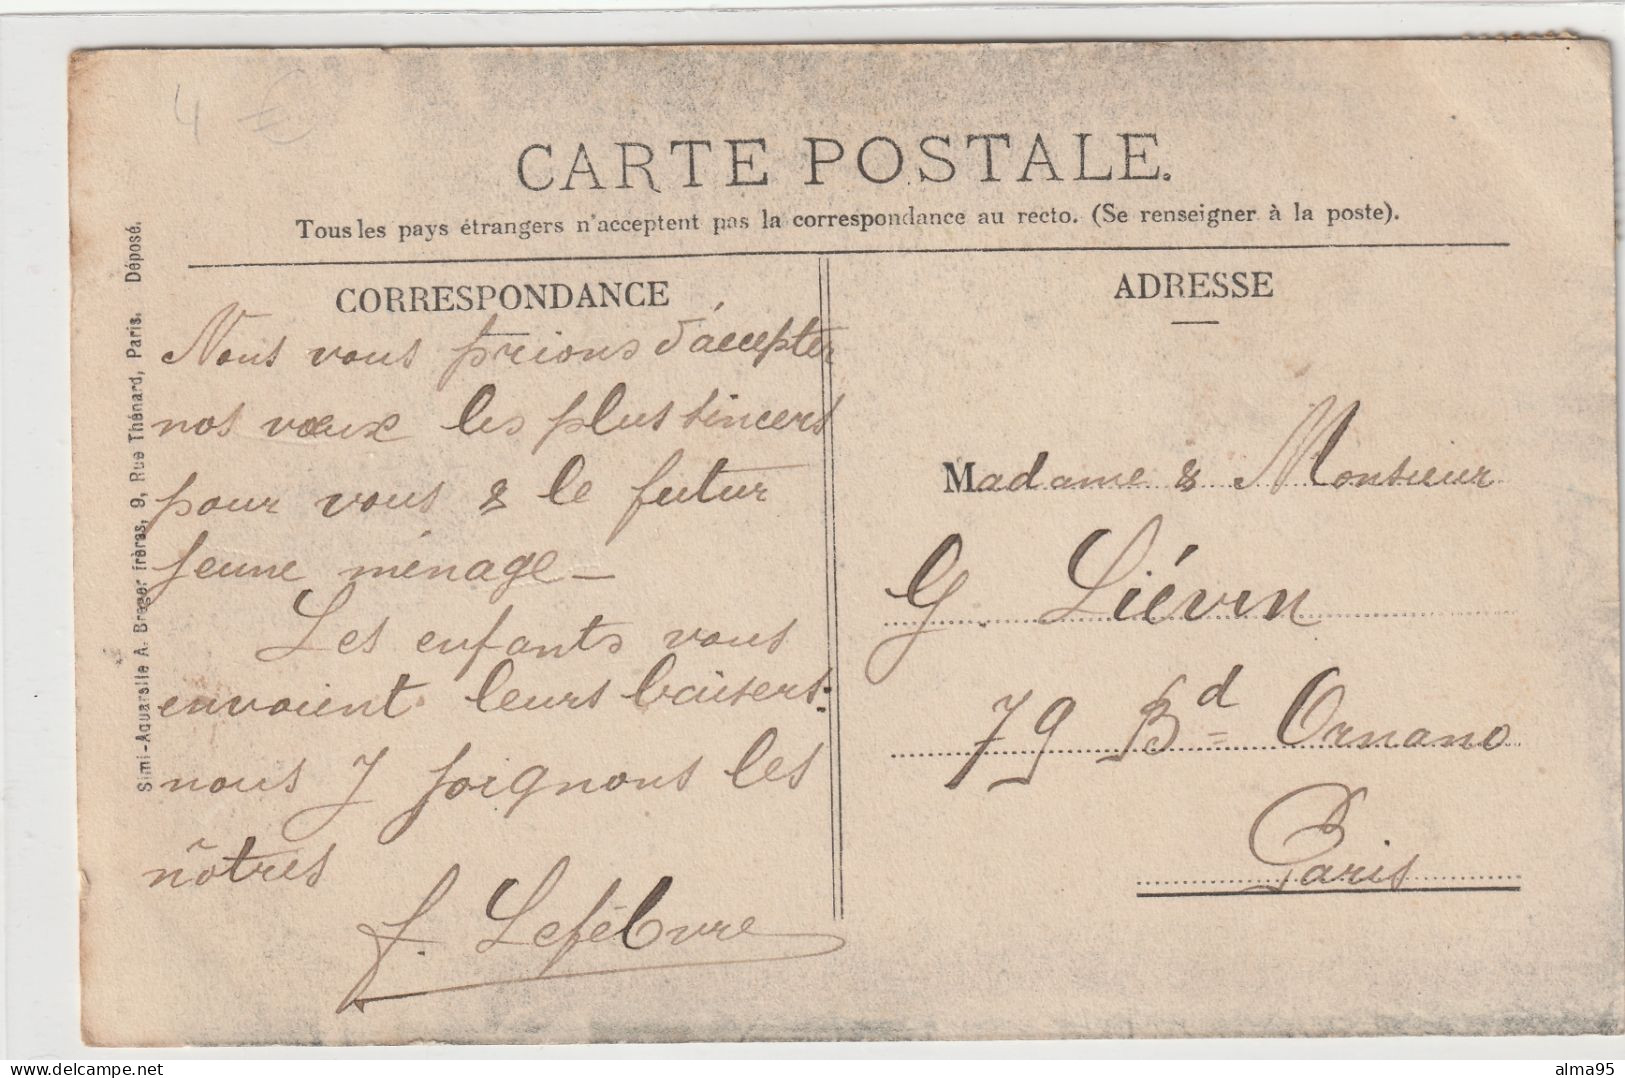 4 €
CARTE POSTALE.
Tous les pays étrangers n'acceptent pas la correspondance au recto. (Se renseigner à la poste).
CORRESPONDANCE
Nous vous prions d'accepter
nos vœux les plus sincers
pour vous & le futur
jeune ménage_
Les enfants vous
envoient leurs baisers.
nous y joignons les
nôtres
J. Lefèbvre
ADRESSE
Madame & Monsieur
G. Liévin
79 Bd Ornano
Paris
Simi-Aquarelle A. Breger frères, 9, Rue Thénard, Paris. Déposé.
alma95